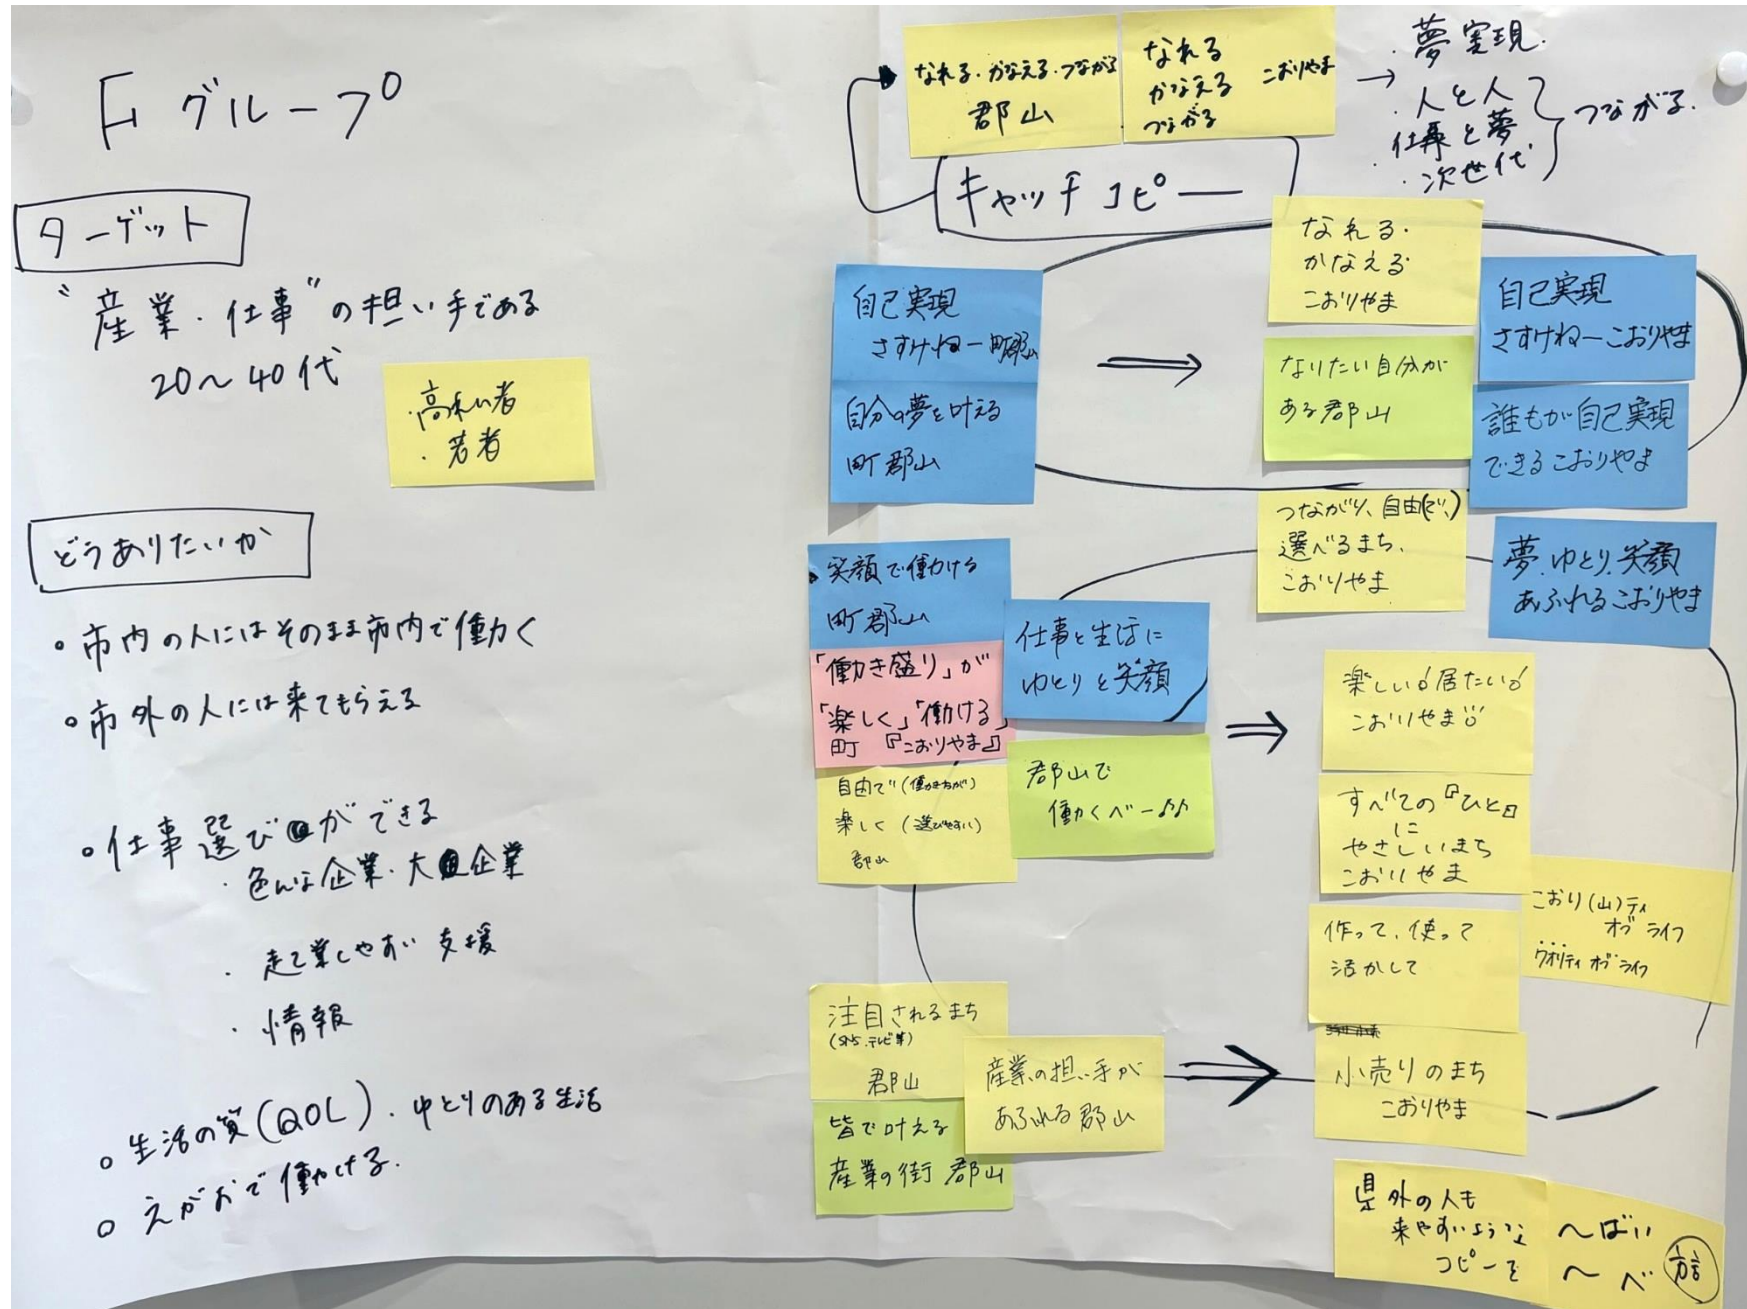 Fグループ
ターゲット
"産業・仕事"の担い手である
20〜40代
・高れい者
・若者
どうありたいか
○市内の人にはそのまま市内で働く
○市外の人には来てもらえる
○仕事選びができる
・色んな企業・大企業
・起業しやすい支援
・情報
○生活の質(QOL)・ゆとりのある生活
○えがおで働ける.
なれる・かなえる・つながる
郡山
なれる
かなえる こおりやま
つながる
→・夢実現.
・人と人
仕事と夢
・次世代
つながる.
キャッチコピー
自己実現
さすけねー町郡山
自分の夢を叶える
町郡山
なれる・
かなえる
こおりやま
なりたい自分が
ある郡山
自己実現
さすけねーこおりやま
誰もが自己実現
できるこおりやま
つながり、自由(で、)
選べるまち、
こおりやま
夢、ゆとり、笑顔
あふれるこおりやま
笑顔で働ける
町郡山
仕事と生活に
ゆとりと笑顔
「働き盛り」が
「楽しく」「働ける」
町『こおりやま』
自由で(働きながら)
楽しく(選びやすい)
郡山
郡山で
働くべー♪♪
楽しい♂居たい♂
こおりやま
すべての『ひと』
に
やさしいまち
こおりやま
こおり(山)ティ
オブ ライフ
クオリティ オブ ライフ
作って、使って
活かして
注目されるまち
(SNS、テレビ等)
郡山
産業の担い手が
あふれる郡山
皆で叶える
産業の街 郡山
小売りのまち
こおりやま
県外の人も
来やすいような
コピーを
〜ばい
〜べ
方言